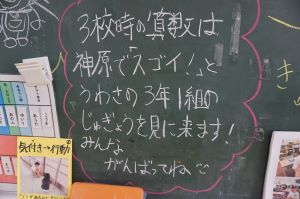 3校時の算数は
神原で「スゴイ!」と
うわさの3年1組の
じゅぎょうを見に来ます!
みんな
がんばってね
き
気付き→行動